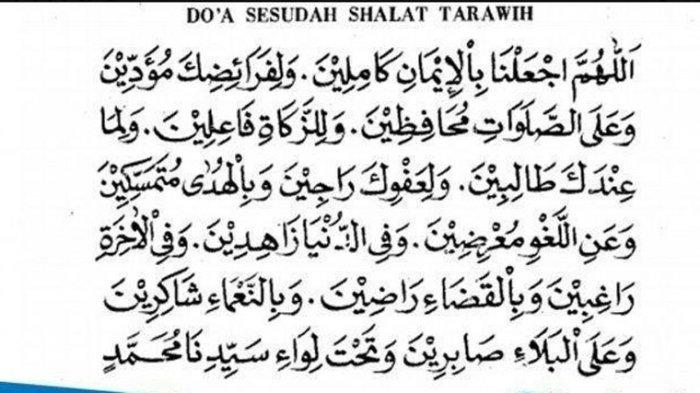 DO'A SESUDAH SHALAT TARAWIH
اَللّٰهُمَّ اجْعَلْنَا بِاْلاِيْمَانِ كَامِلِيْنَ. وَلِفَرَائِضِكَ مُؤَدِّيْنَ
وَعَلَى الصَّلَوَاتِ مُحَافِظِيْنَ. وَلِلزَّكَاةِ فَاعِلِيْنَ. وَلِمَا
عِنْدَكَ طَالِبِيْنَ. وَلِعَفْوِكَ رَاجِيْنَ وَبِالْهُدٰى مُتَمَسِّكِيْنَ
وَعَنِ اللَّغْوِ مُعْرِضِيْنَ. وَفِى الدُّنْيَا زَاهِدِيْنَ. وَفِى اْلاٰخِرَةِ
رَاغِبِيْنَ وَبِاْلقَضَاءِ رَاضِيْنَ. وَبِالنَّعْمَاءِ شَاكِرِيْنَ
وَعَلَى اْلبَلَاءِ صَابِرِيْنَ وَتَحْتَ لِوَاءِ سَيِّدِنَا مُحَمَّدٍ